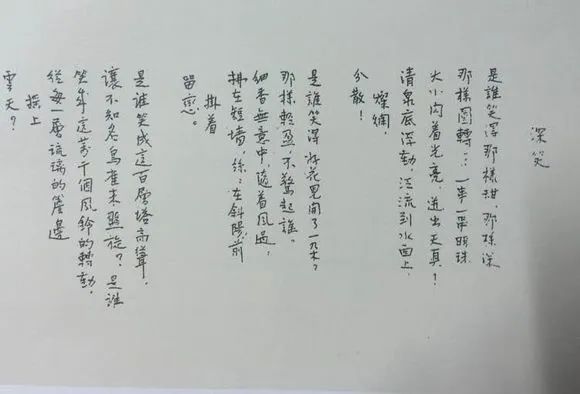 深笑
是誰笑得那樣甜,那樣深
那樣圓轉?一串一串明珠
大小閃着光亮,迸出天真!
清泉底浮動,泛流到水面上,
燦爛,
分散!
是誰笑得好花兒開了一朵?
那樣輕盈,不驚起誰。
細香無意中,隨着風過,
拂在短墻,絲々在斜陽前
掛着
留戀。
是誰笑成這百層塔高聳,
讓不知名鳥雀來盤旋?是誰
笑成這萬千個風鈴的轉動,
從每一層琉璃的簷邊
搖上
雲天?